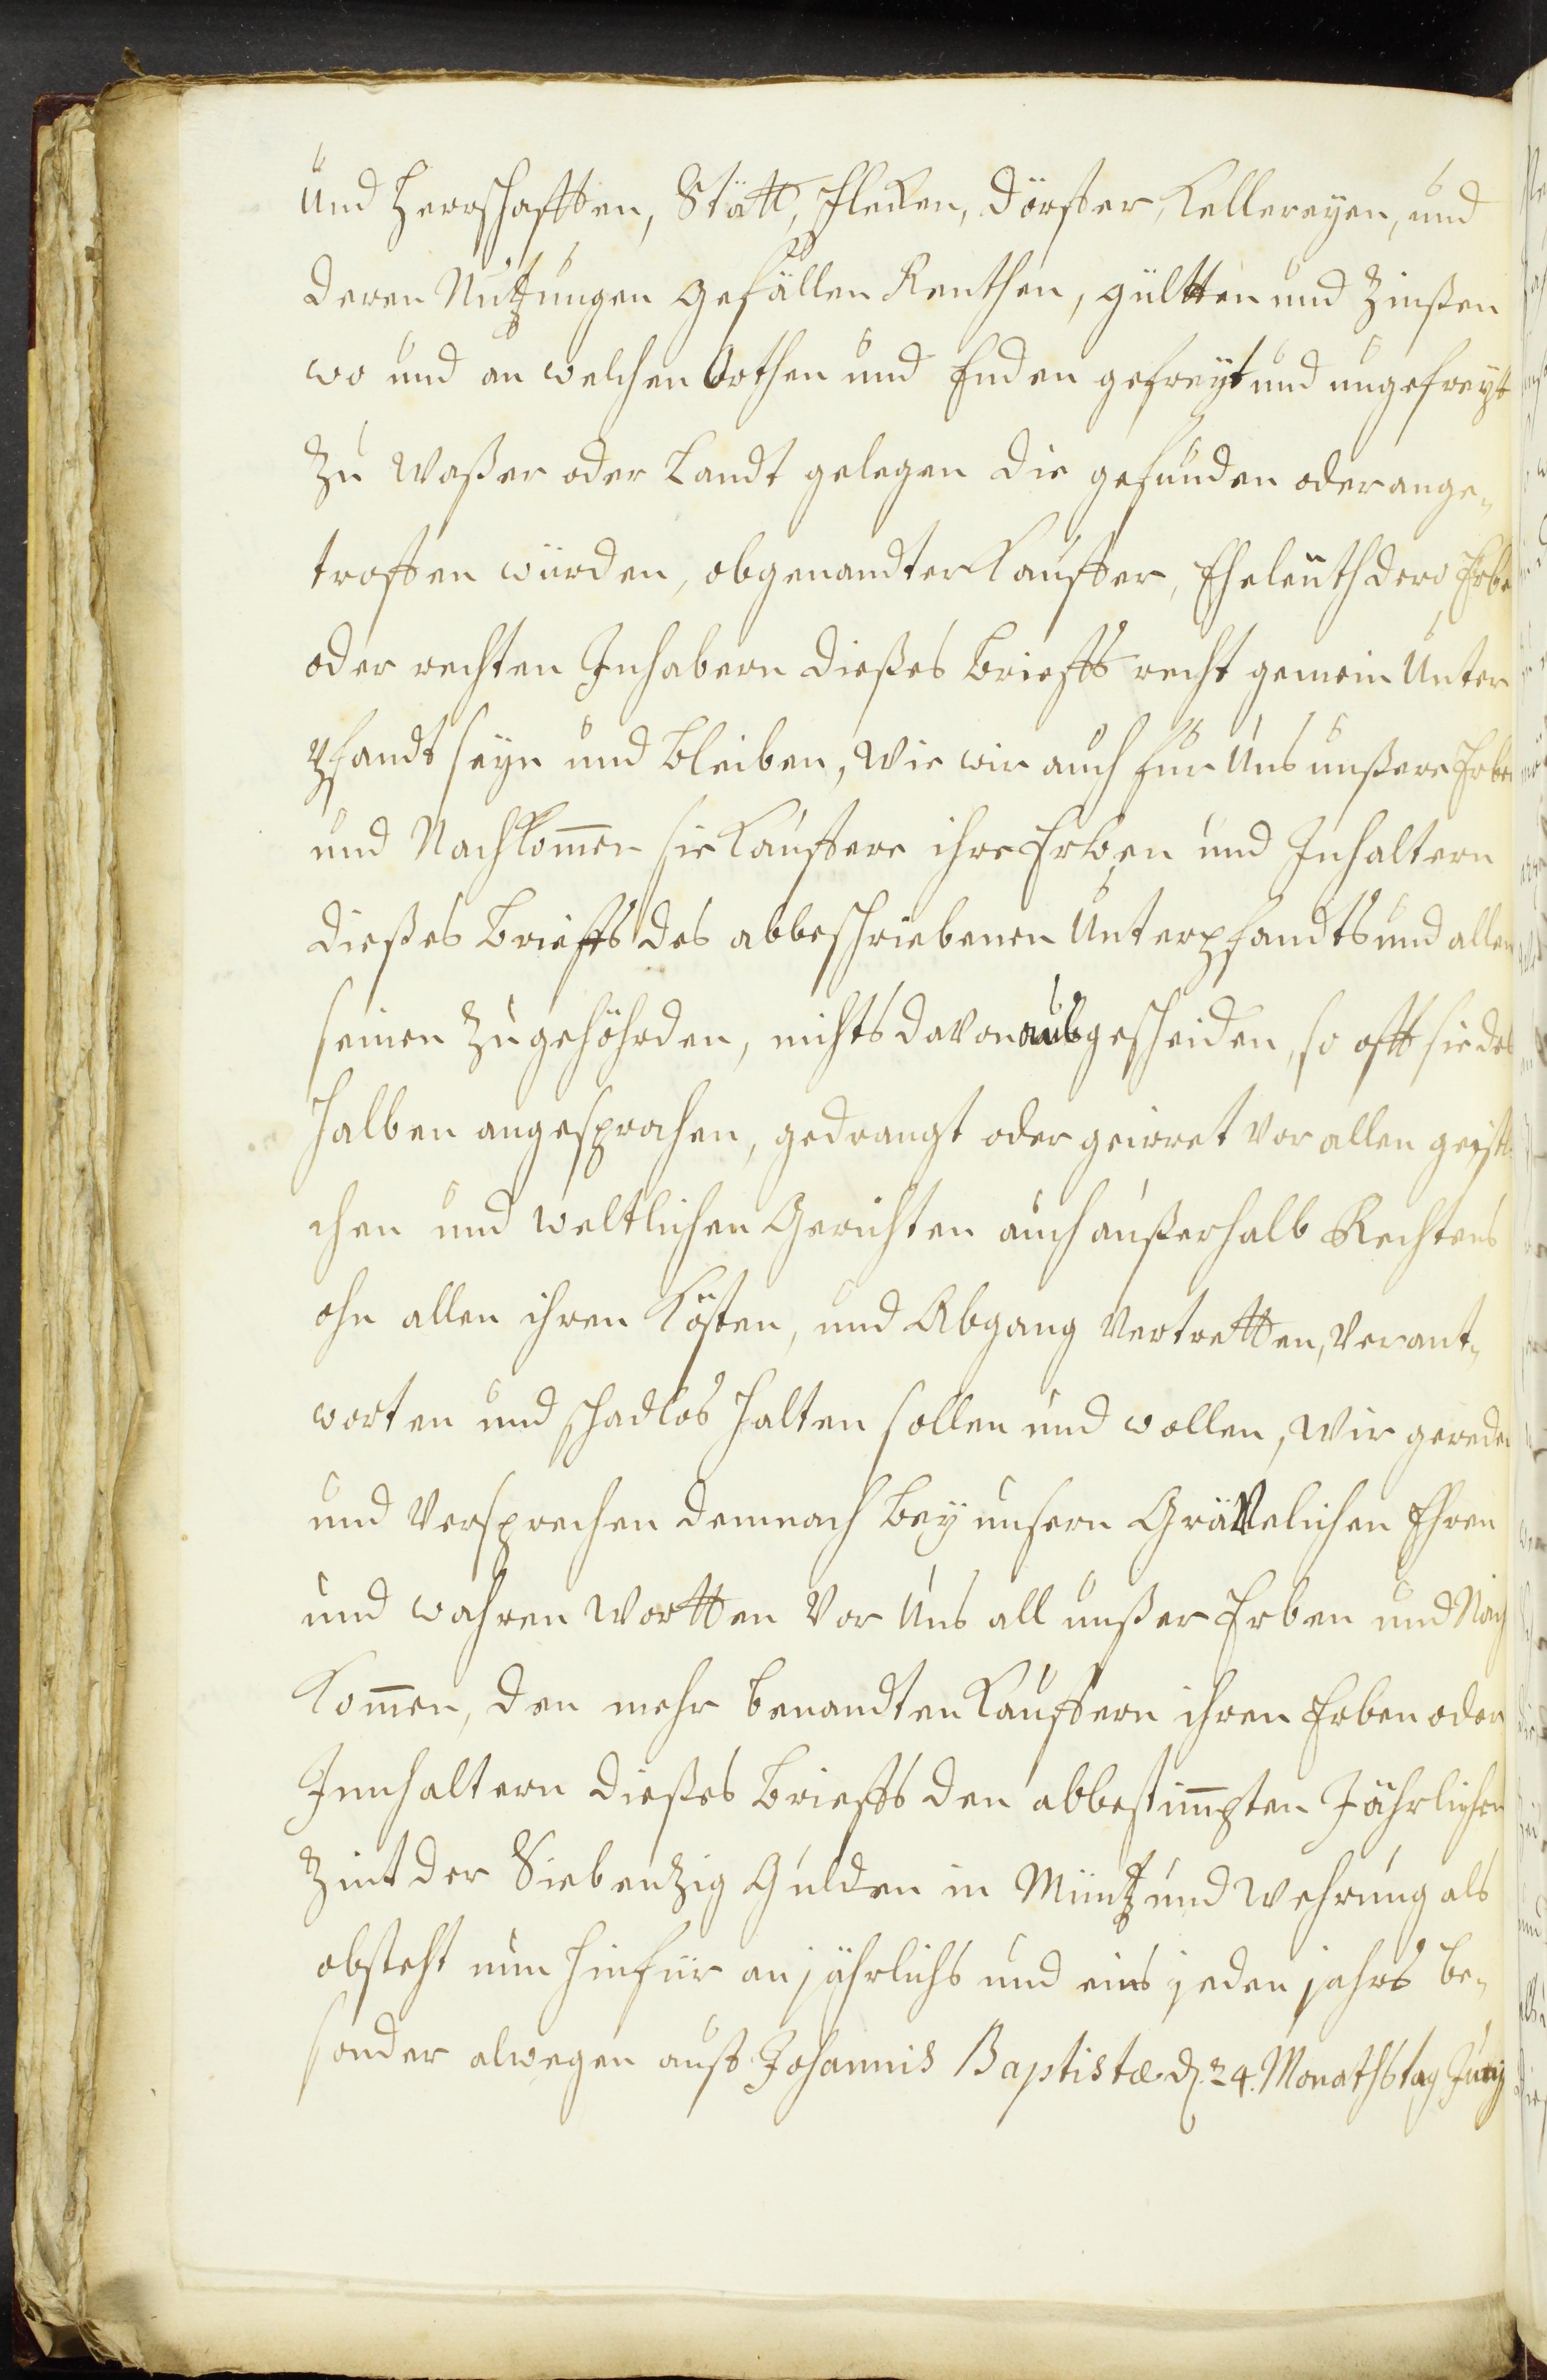 und Herrschafften, Stätt, Flecken, Dörffer, Kellereyen, und
deren Nutzungen Gefällen Renthen, gültten und Zinßen
wo und an welchen Orthen und Enden gefreyt und ungefreyt
zu Waßer oder Landt gelegen die gefunden oder ange„
troffen würden, obgenandter Kauffer, Eheleuth dero Erbe
oder rechten Inhabern dießes Brieffs recht gemein Unter
pfandt seyn und bleiben, wie wir auch für Uns unßere Erben
und Nachkom̅en sie Kauffere ihre Erben und Inhaltern
dießes Brieffs des abbeschriebenen Unterpfandts und allen
seinen Zugehöhrden, nichts davon aubgescheiden, so offt sie des
halben angesprochen, gedrangt oder geirret vor allen geistl
chen und weltlichen Gerichten auch außerhalb Rechtens
ohn allen ihren Kösten, und Abgang Vertretten, Verant„
worten und schadlos halten sollen und wollen, Wir gereden
und Versprechen demnach bey unsern Grävelichen Ehren
und wahren Wortten Vor Uns all unßer Erben und Nach
kom̅en, den mehr benandten Kauffern ihren Erben oder
Innhaltern dießes Brieffs den abbestim̅pten Jährlichen
Zint der Siebenzig Gulden in Müntz und Wehrung als
obsteht nun hinfür an jährlichs und eins jeden jahrs be„
sonder alwegen auff Johannis Baptistæ d. 24. Monathstag Junij